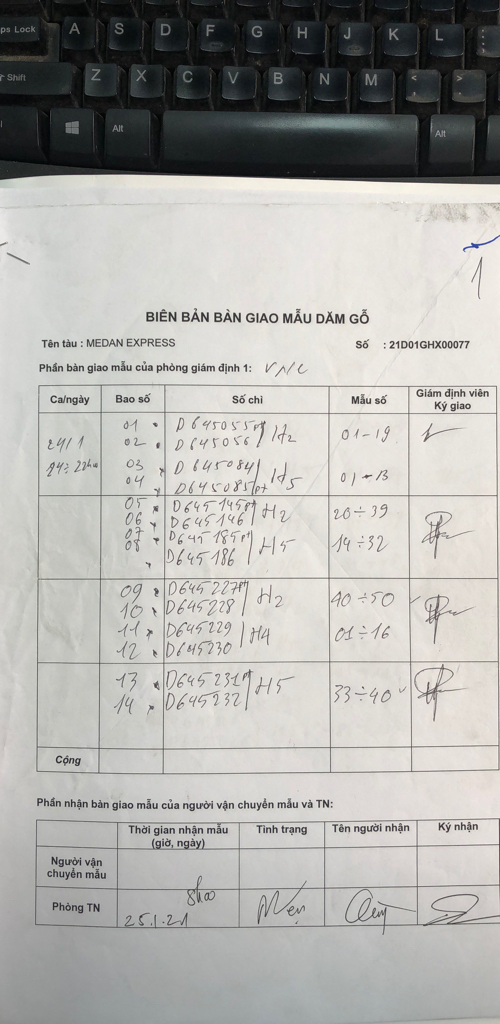 Caps Lock A S D F G H J K L :
Shift Z X C V B N M < >
Alt Alt
1
BIÊN BẢN BÀN GIAO MẪU DĂM GỖ
Tên tàu : MEDAN EXPRESS Số : 21D01GHX00077
Phần bàn giao mẫu của phòng giám định 1: VNC
Ca/ngày Bao số Số chì Mẫu số Giám định viên
Ký giao
01 D645055pt
24/1 02 D645056 H2 01-19
03 D645084
04 D645085pt H5 01-13
05 D645145pt
06 D645146 H2 20÷39
07 D645185pt
08 D645186 H5 14÷32
09 D645227pt
10 D645228 H2 40÷50
11 D645229
12 D645230 H4 01÷16
13 D645231pt
14 D645232 H5 33÷40
Cộng
Phần nhận bàn giao mẫu của người vận chuyển mẫu và TN:
Thời gian nhận mẫu Tình trạng Tên người nhận Ký nhận
(giờ, ngày)
Người vận
chuyển mẫu
8h00
Phòng TN 25.1.21 Quý